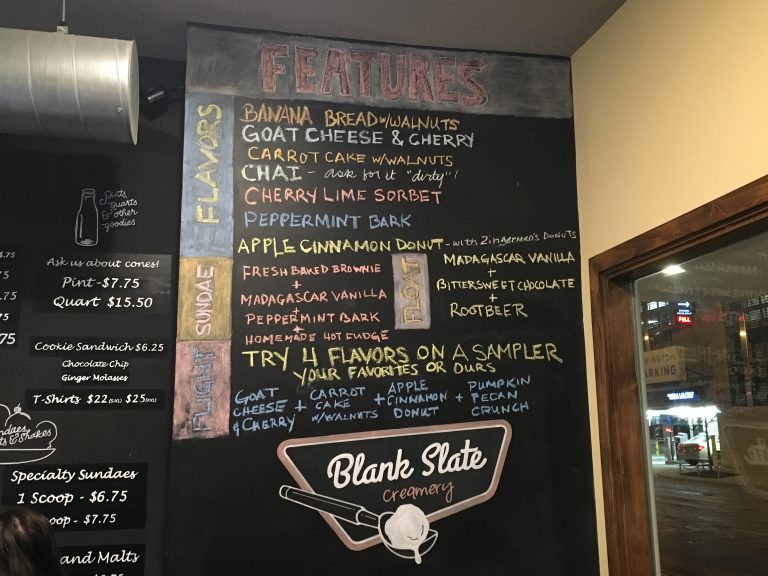 FEATURES
FLAVORS
BANANA BREAD w/WALNUTS
GOAT CHEESE & CHERRY
CARROT CAKE w/WALNUTS
CHAI - ask for it "dirty"!
CHERRY LIME SORBET
PEPPERMINT BARK
APPLE CINNAMON DONUT - with Zingerman's Donuts
SUNDAE
FRESH BAKED BROWNIE
+
MADAGASCAR VANILLA
+
PEPPERMINT BARK
+
HOMEMADE HOT FUDGE
FLOAT
MADAGASCAR VANILLA
+
BITTERSWEET CHOCOLATE
+
ROOTBEER
FLIGHT
TRY 4 FLAVORS ON A SAMPLER
YOUR FAVORITES OR OURS
GOAT CHEESE & CHERRY + CARROT CAKE w/WALNUTS + APPLE CINNAMON DONUT + PUMPKIN PECAN CRUNCH
Blank Slate
creamery
Pints,
quarts
& other
goodies
Ask us about cones!
Pint-$7.75
Quart $15.50
Cookie Sandwich $6.25
Chocolate Chip
Ginger Molasses
T-Shirts $22 $25
& Shakes
Specialty Sundaes
1 Scoop - $6.75
oop - $7.75
and Malts
.75
75
PARKING
FULL